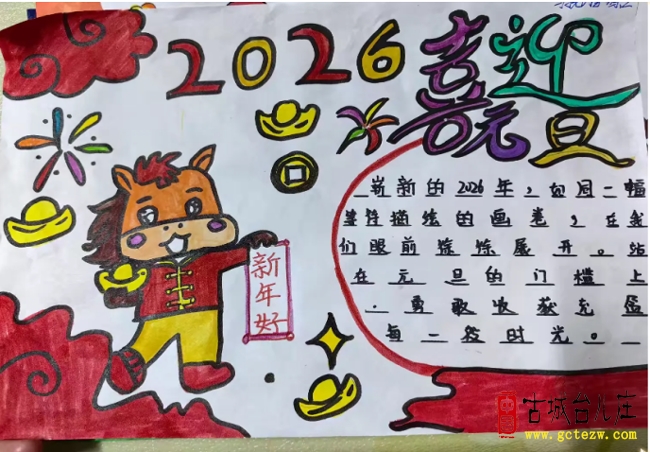 2026
喜迎
元旦
新年好
崭新的2026年，如同一幅
描绘的画卷，在我
们眼前徐徐展开。站
在元旦的门槛上
，勇敢收获充盈
每一段时光。
古城台儿庄
www.gctezw.com